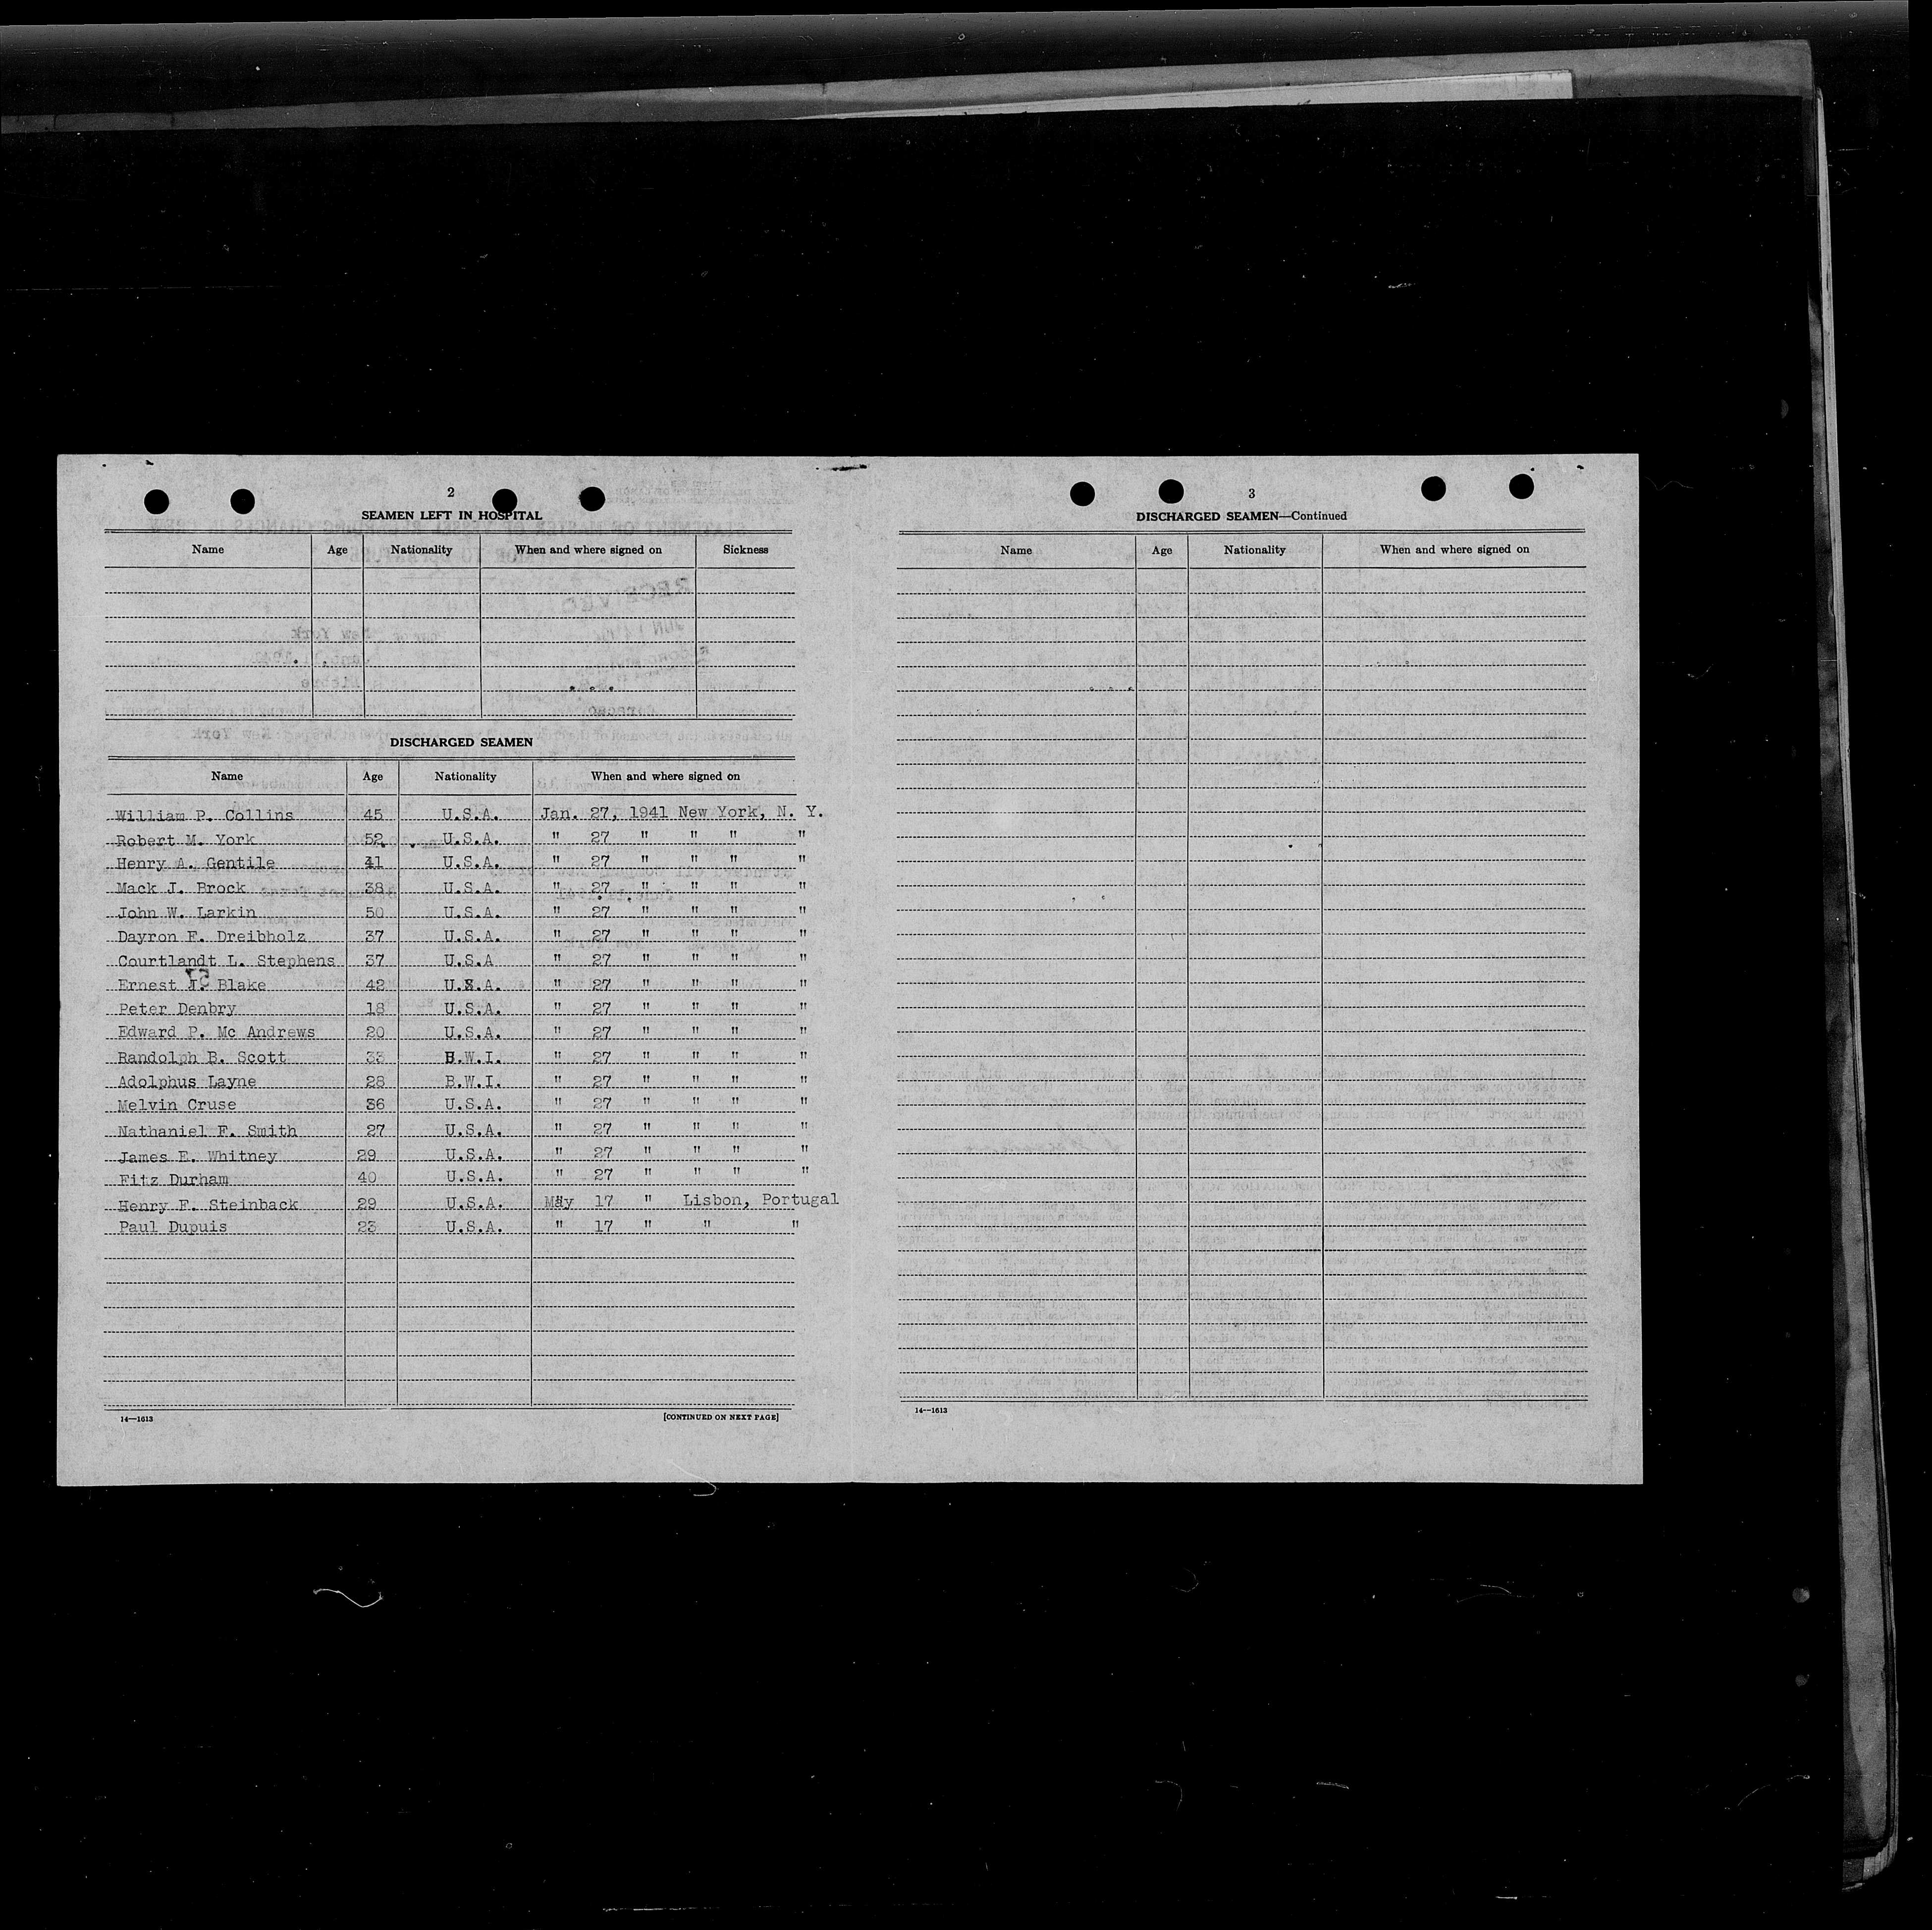 2
SEAMEN LEFT IN HOSPITAL
Name Age Nationality When and where signed on Sickness
DISCHARGED SEAMEN
Name Age Nationality When and where signed on
William P. Collins 45 U.S.A. Jan. 27, 1941 New York, N. Y.
Robert M. York 52 U.S.A. " 27 " " " "
Henry A. Gentile 41 U.S.A. " 27 " " " "
Mack J. Brock 38 U.S.A. " 27 " " " "
John W. Larkin 50 U.S.A. " 27 " " " "
Dayron F. Dreibholz 37 U.S.A. " 27 " " " "
Courtlandt L. Stephens 37 U.S.A " 27 " " " "
Ernest J. Blake 42 U.S.A. " 27 " " " "
Peter Denbry 18 U.S.A. " 27 " " " "
Edward P. Mc Andrews 20 U.S.A. " 27 " " " "
Randolph B. Scott 33 B.W.I. " 27 " " " "
Adolphus Layne 28 B.W.I. " 27 " " " "
Melvin Cruse 36 U.S.A. " 27 " " " "
Nathaniel F. Smith 27 U.S.A. " 27 " " " "
James E. Whitney 29 U.S.A. " 27 " " " "
Fitz Durham 40 U.S.A. " 27 " " " "
Henry F. Steinback 29 U.S.A. May 17 " Lisbon, Portugal
Paul Dupuis 23 U.S.A. " 17 " " "
14—1613 [CONTINUED ON NEXT PAGE]
3
DISCHARGED SEAMEN—Continued
Name Age Nationality When and where signed on
14—1613